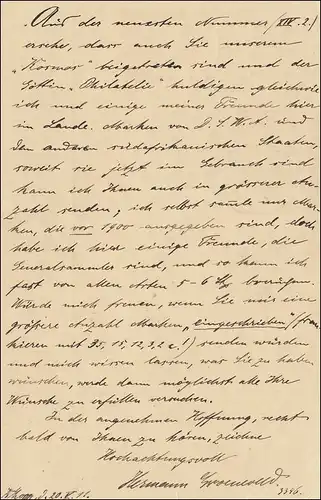 Aus der neuesten Nummer (XIV. 2.)
ersehe, dass auch Sie unserem
„Kosmos" beigetreten sind und der
Göttin „Philatelie" huldigen gleichwie
ich und einige meiner Freunde hier
im Lande. Marken von D. S. W. A. und
den anderen südafrikanischen Staaten,
soweit sie jetzt im Gebrauch sind
kann ich Ihnen auch in grösserer An-
zahl senden; ich selbst samle nur Mar-
ken, die vor 1900 ausgegeben sind, doch
habe ich hier einige Freunde, die
Generalsammler sind, und so kann ich
fast von allen Arten 5-6 Stk
Würde mich freuen, wenn Sie mir eine
größere Anzahl Marken „eingeschrieben" (fran-
kieren mit 35, 15, 12, 3, 2 c.!) senden würden
und mich wissen lassen, was Sie zu haben
wünschen, werde dann möglichst alle Ihre
Wünsche zu erfüllen versuchen.
In der angenehmen Hoffnung, recht
bald von Ihnen zu hören, zeichne
Hochachtungsvoll
Hermann
3386.
20. V. 11.